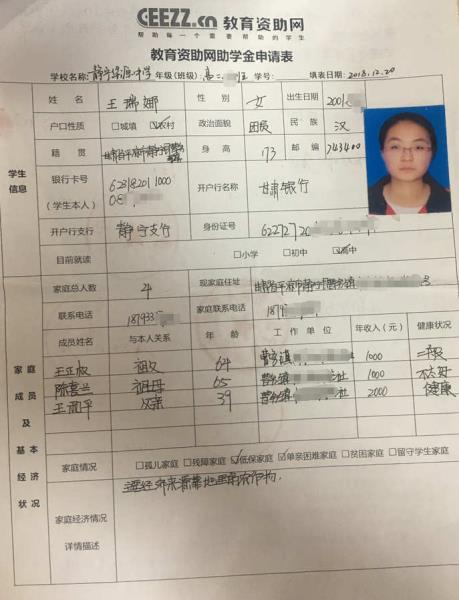 CEEZZ.cn 教育资助网
帮助每一个需要帮助的学生
教育资助网助学金申请表
学校名称: 年级(班级): 高二 班 学号: 填表日期: 2018.12.20
学生信息
姓名 王瑞娜 性别 女 出生日期 2001
户口性质 □城镇 ☑农村 政治面貌 团员 民族 汉
籍贯 身高 173 邮编 743400
银行卡号 (学生本人) 62318201 1000 08 开户行名称 甘肃银行
开户行支行 静宁支行 身份证号 622727 20
目前就读 □小学 □初中 ☑高中
家庭成员及基本经济状况
家庭总人数 4 现家庭住址
联系电话 187933 家庭联系电话 187
成员姓名 与本人关系 年龄 工作单位 年收入(元) 健康状况
祖父 64 1000 一般
祖母 65 1000 不太好
父亲 39 2000 健康
家庭情况 □孤儿家庭 □残障家庭 ☑低保家庭 ☑单亲困难家庭 □贫困家庭 □留守学生家庭
家庭经济情况详情描述